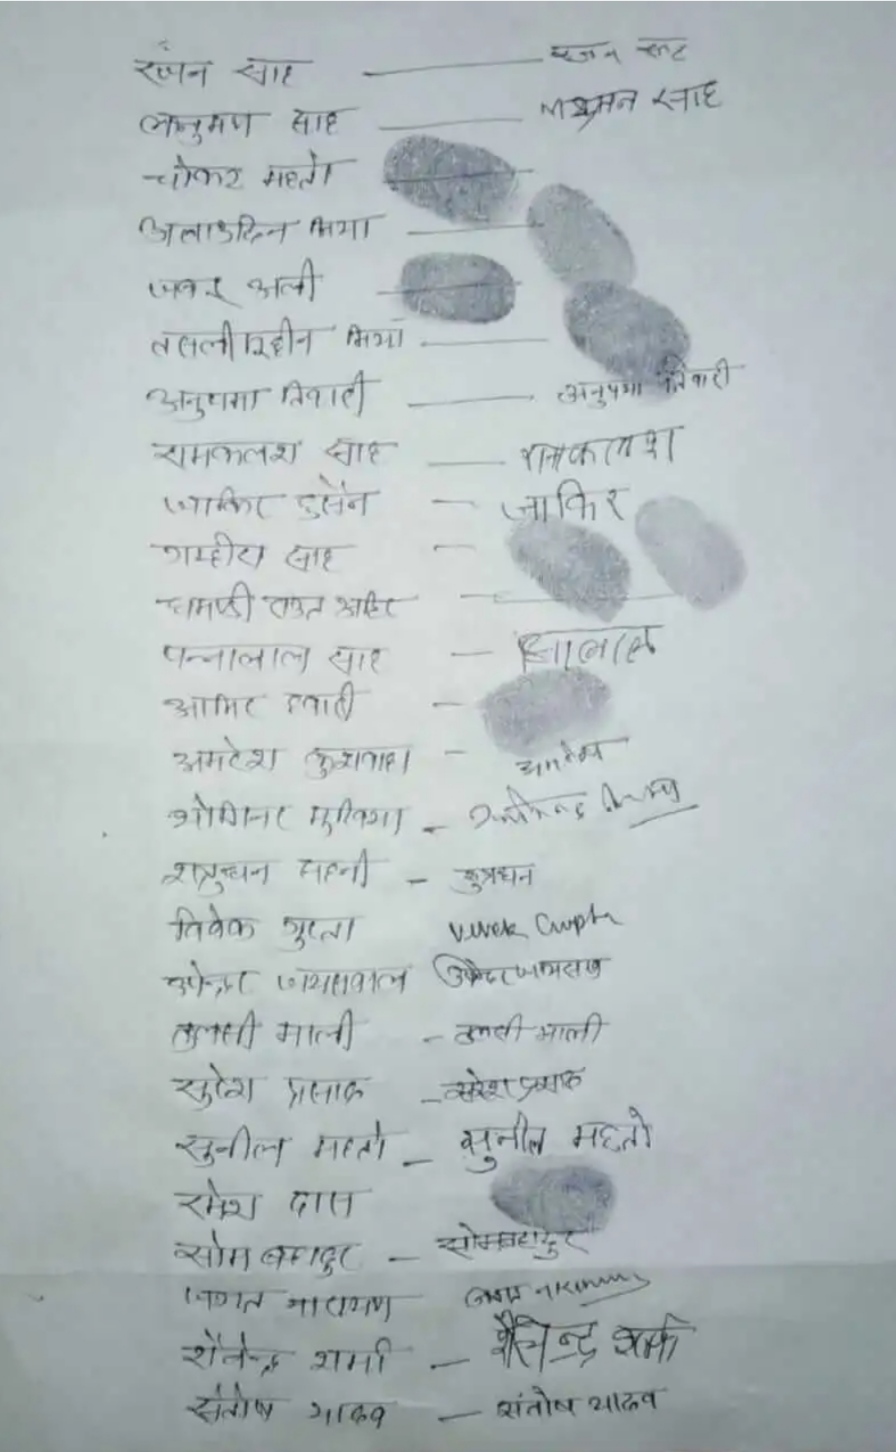 रंजन साह — रंजन साह
लक्षुमण साह — लक्ष्मन साह
चोकट महतो
अलाउदिन मिया
जबर अली
तसलीमुद्दीन मिया
अनुपमा तिवारी — अनुपमा तिवारी
रामकलश साह — रामकलश
जाकिर हुसैन — जाकिर
गम्हीरा साह
चमप्री राउत अहिर
पन्नालाल साह
आमिर हवारी
अमरेश कुशवाहा — अमरेश
मुखिया
शत्रुधन सहनी — शत्रुधन
विवेक गुप्ता Vivek Gupta
उपेन्द्र जायसवाल
तुलसी माली — तुलसी माली
सुरेश प्रसाद — सुरेश प्रसाद
सुनील महतो — सुनील महतो
रमेश दास
सोम बहादुर — सोमबहादुर
जगत नारायण
शैलेन्द्र शर्मा — शैलेन्द्र शर्मा
संतोष यादव — संतोष यादव